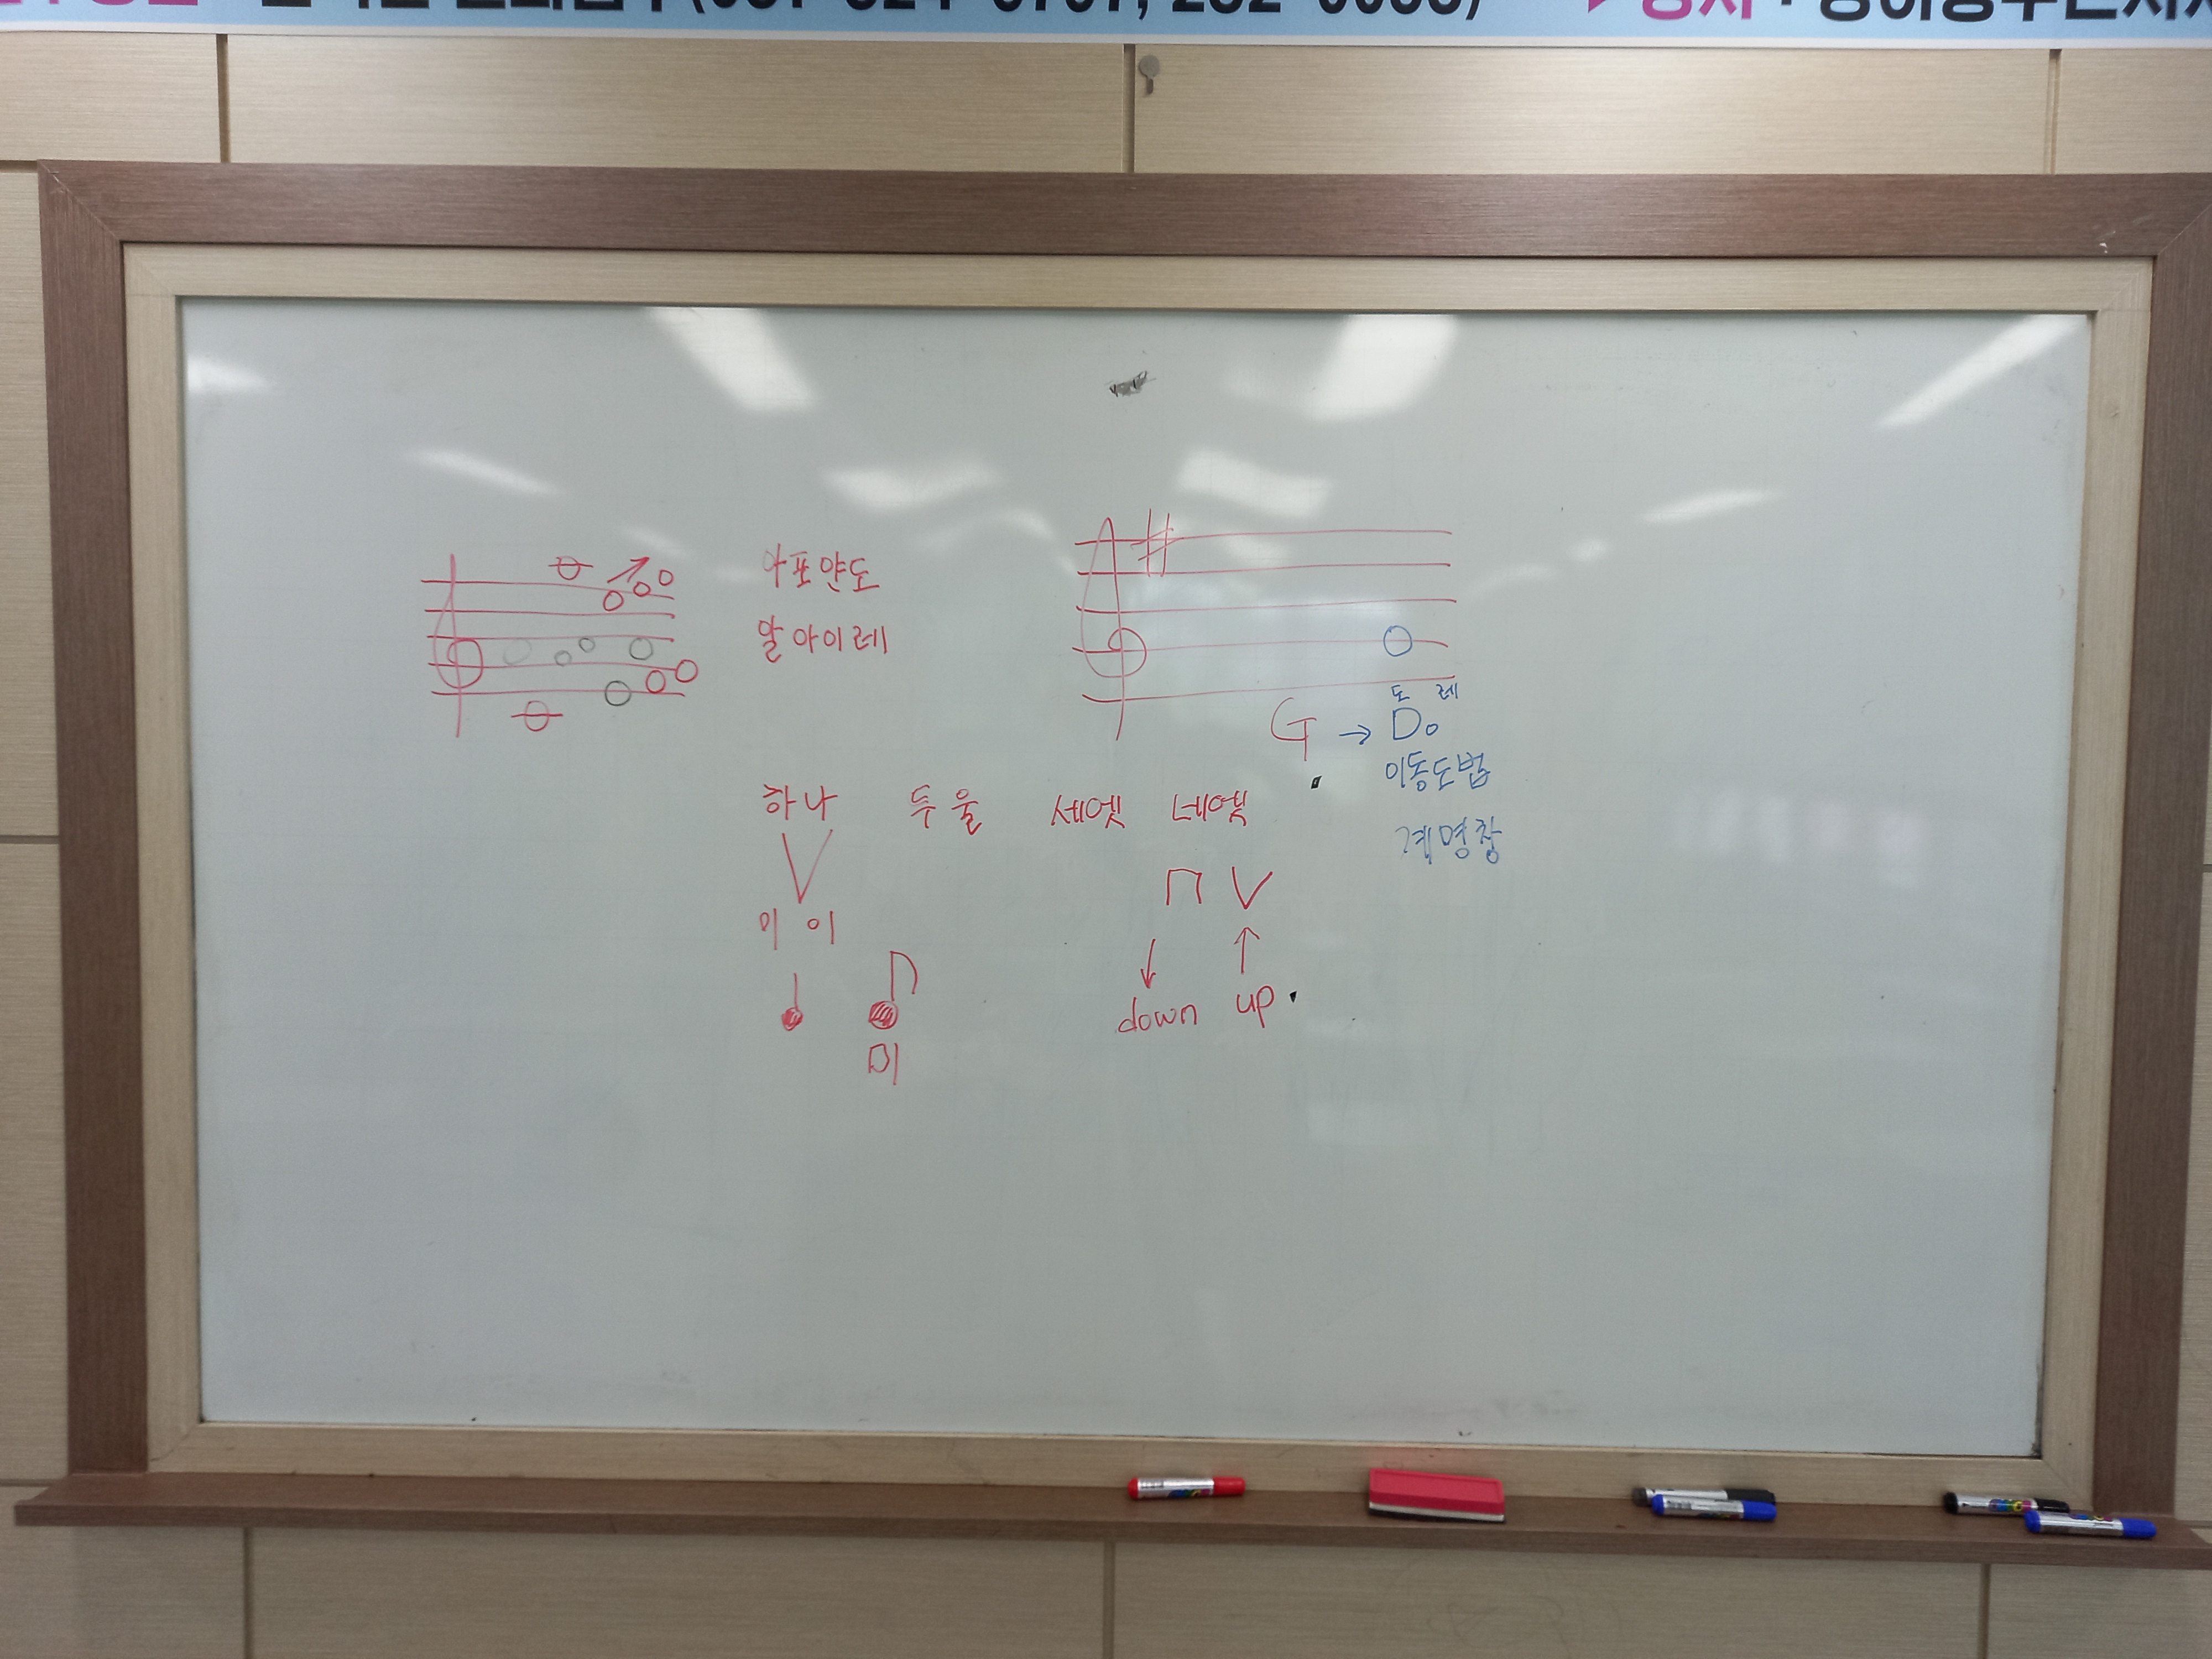 아포얀도
알아이레
도 레
G → Do
이동도법
계명창
하나 두울 세엣 네엣
미 이
down up
미